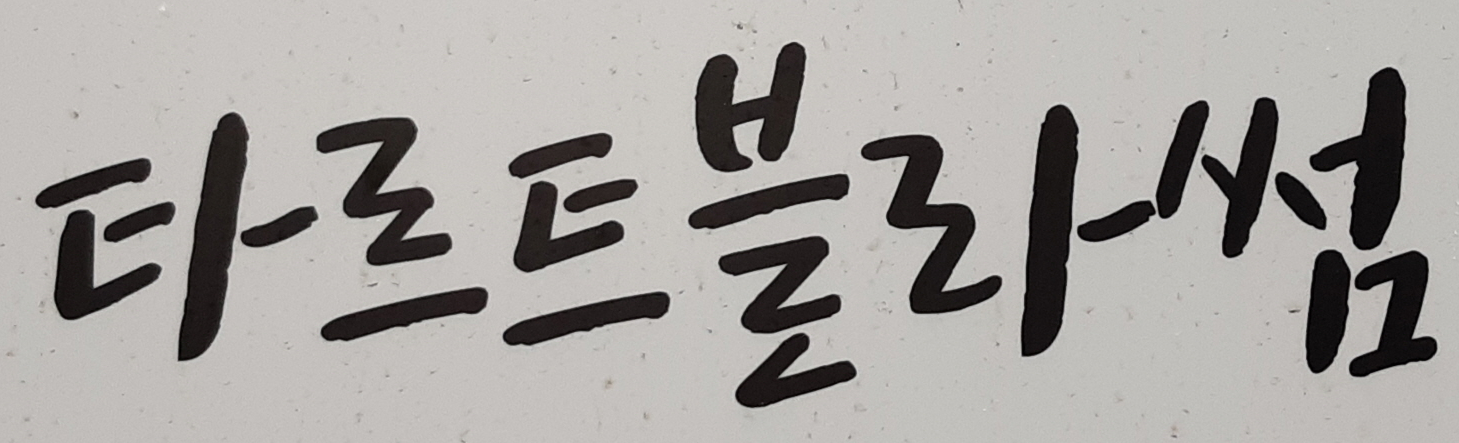 타르트블라썸